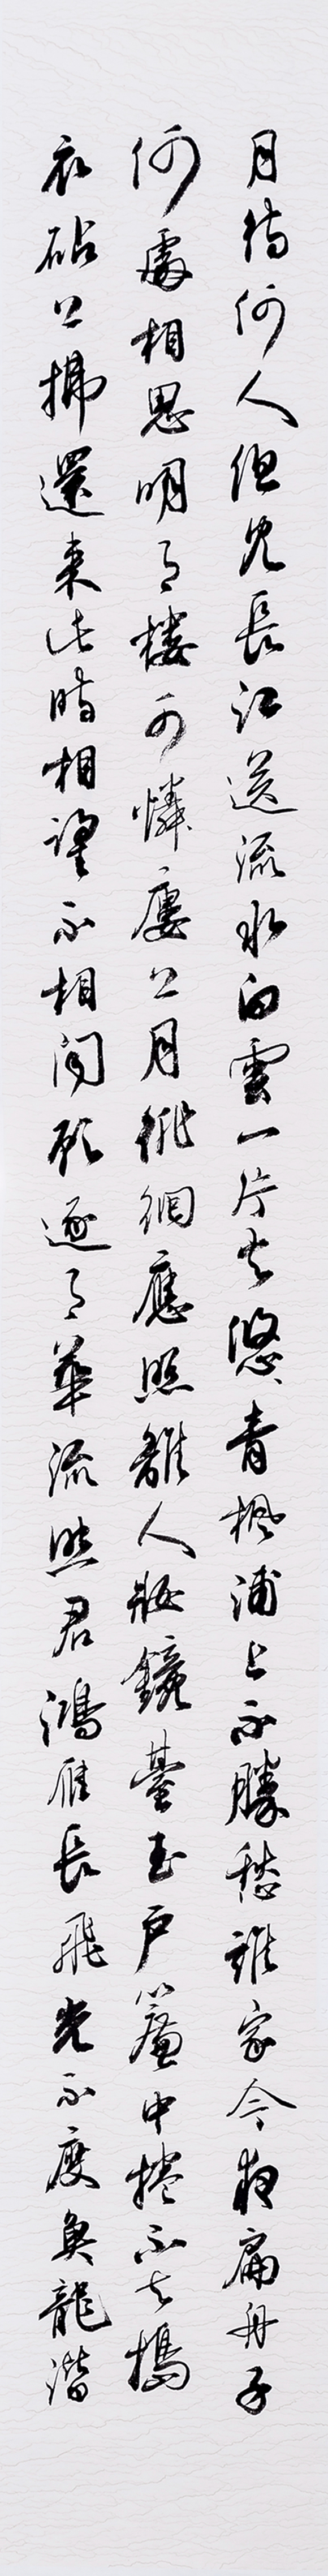 月待何人但見長江送流水白雲一片去悠〻青楓浦上不勝愁誰家今夜扁舟子
何處相思明月樓可憐樓上月徘徊應照離人妝鏡臺玉戶簾中捲不去搗
衣砧上拂還來此時相望不相聞願逐月華流照君鴻雁長飛光不度魚龍潛